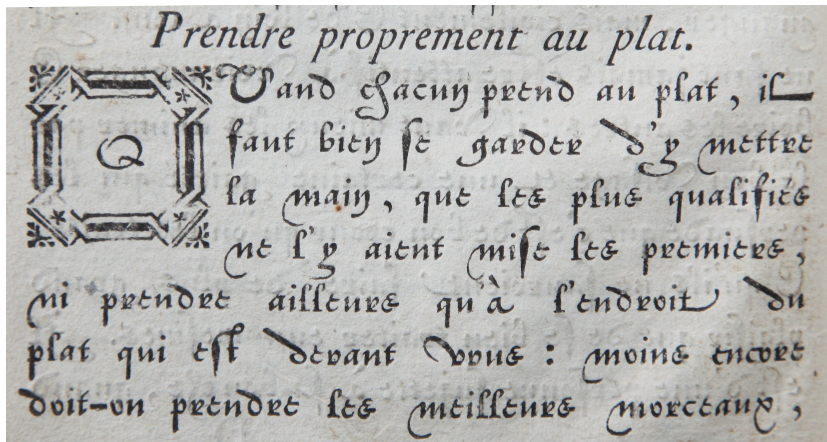 Prendre proprement au plat.
QVand chacun prend au plat, il
faut bien se garder d'y mettre
la main, que les plus qualifiés
ne l'y aient mise les premiers,
ni prendre ailleurs qu'à l'endroit du
plat qui est devant vous : moins encore
doit-on prendre les meilleurs morceaux,